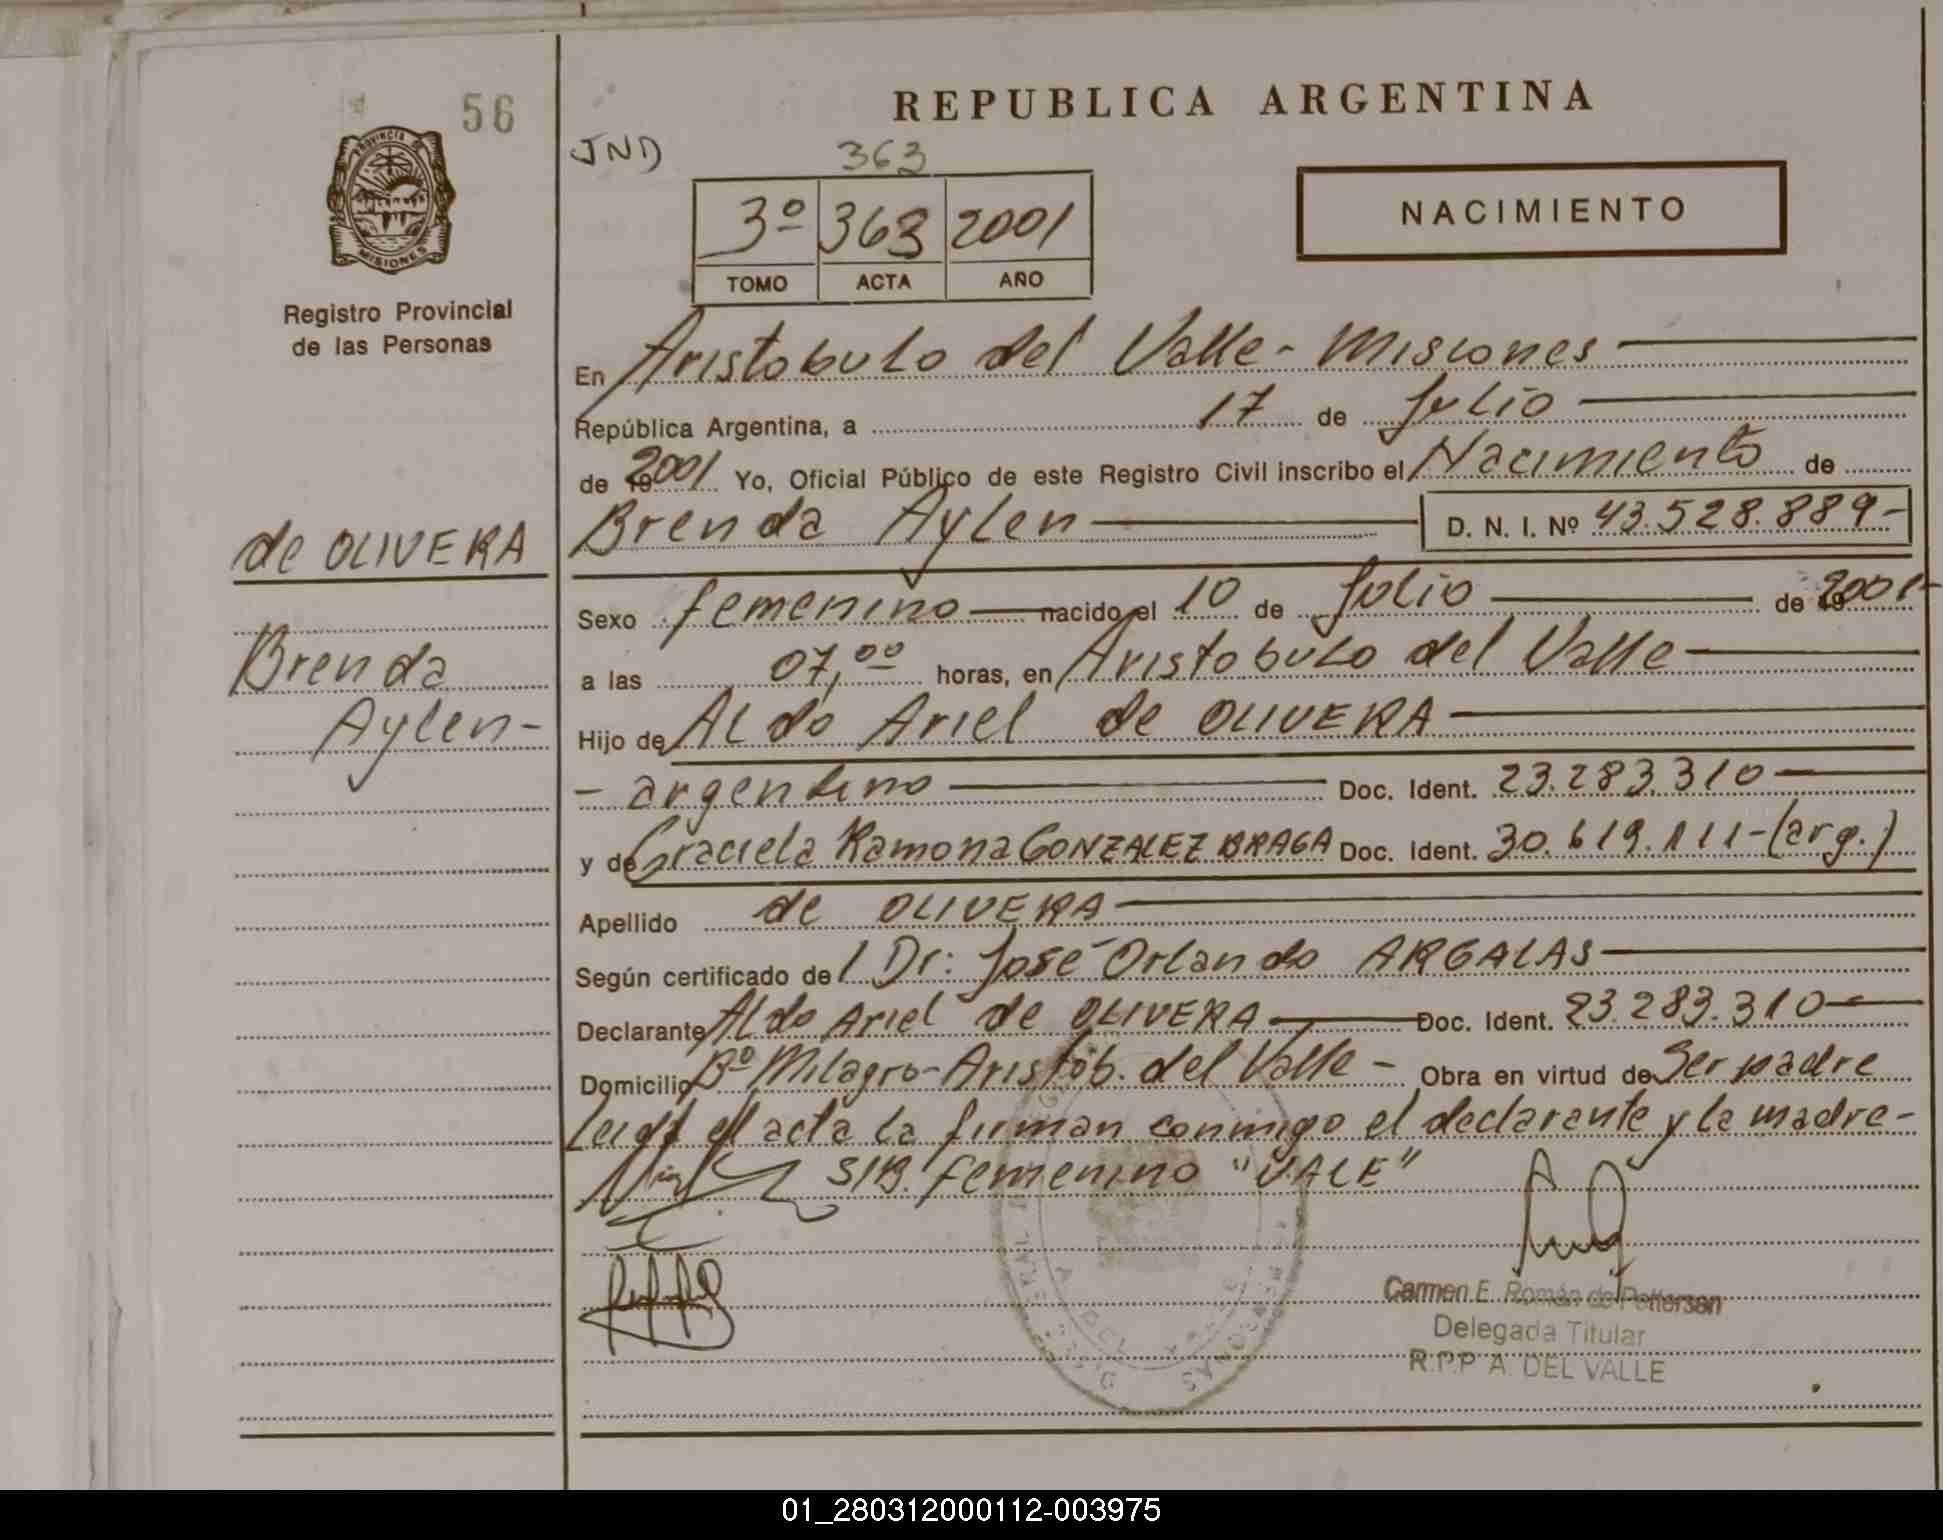 56
PROVINCIA DE
MISIONES
Registro Provincial
de las Personas
de OLIVERA
Brenda
Aylen-
REPUBLICA ARGENTINA
JND
363
3º 363 2001
TOMO ACTA AÑO
NACIMIENTO
En Aristobulo del Valle - Misiones
República Argentina, a 17 de Julio
de 2001 Yo, Oficial Público de este Registro Civil inscribo el Nacimiento de
Brenda Aylen D. N. I. Nº 43.528.889-
Sexo femenino nacido el 10 de Julio de 2001-
a las 07,00 horas, en Aristobulo del Valle
Hijo de Aldo Ariel de OLIVERA
- argentino Doc. Ident. 23.283.310
y de Graciela Ramona GONZALEZ BRAGA Doc. Ident. 30.619.111-(arg.)
Apellido de OLIVERA
Según certificado de l Dr: José Orlando ARGALAS
Declarante Aldo Ariel de OLIVERA Doc. Ident. 23.283.310
Domicilio Bº Milagro-Aristob. del Valle - Obra en virtud de Ser padre
Leida el acta la firman conmigo el declarante y la madre-
S/B. femenino "VALE"
Carmen E. Román de Pettersen
Delegada Titular
R.P.P A. DEL VALLE
01_280312000112-003975